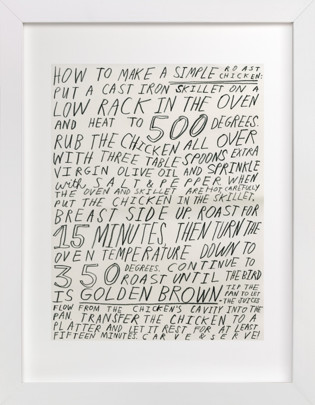 HOW TO MAKE A SIMPLE ROAST CHICKEN:
PUT A CAST IRON SKILLET ON A
LOW RACK IN THE OVEN
AND HEAT TO 500 DEGREES.
RUB THE CHICKEN ALL OVER
WITH THREE TABLE SPOONS EXTRA
VIRGIN OLIVE OIL AND SPRINKLE
with SALT & PEPPER. WHEN
THE OVEN AND SKILLET ARE HOT, CAREFULLY
PUT THE CHICKEN IN THE SKILLET,
BREAST SIDE UP. ROAST FOR
15 MINUTES, THEN TURN THE
OVEN TEMPERATURE DOWN TO
350 DEGREES. CONTINUE TO
ROAST UNTIL THE BIRD
IS GOLDEN BROWN. TIP THE
PAN TO LET
THE JUICES
FLOW FROM THE CHICKEN'S CAVITY INTO THE
PAN. TRANSFER THE CHICKEN TO A
PLATTER AND LET IT REST FOR AT LEAST
FIFTEEN MINUTES. CARVE & SERVE!